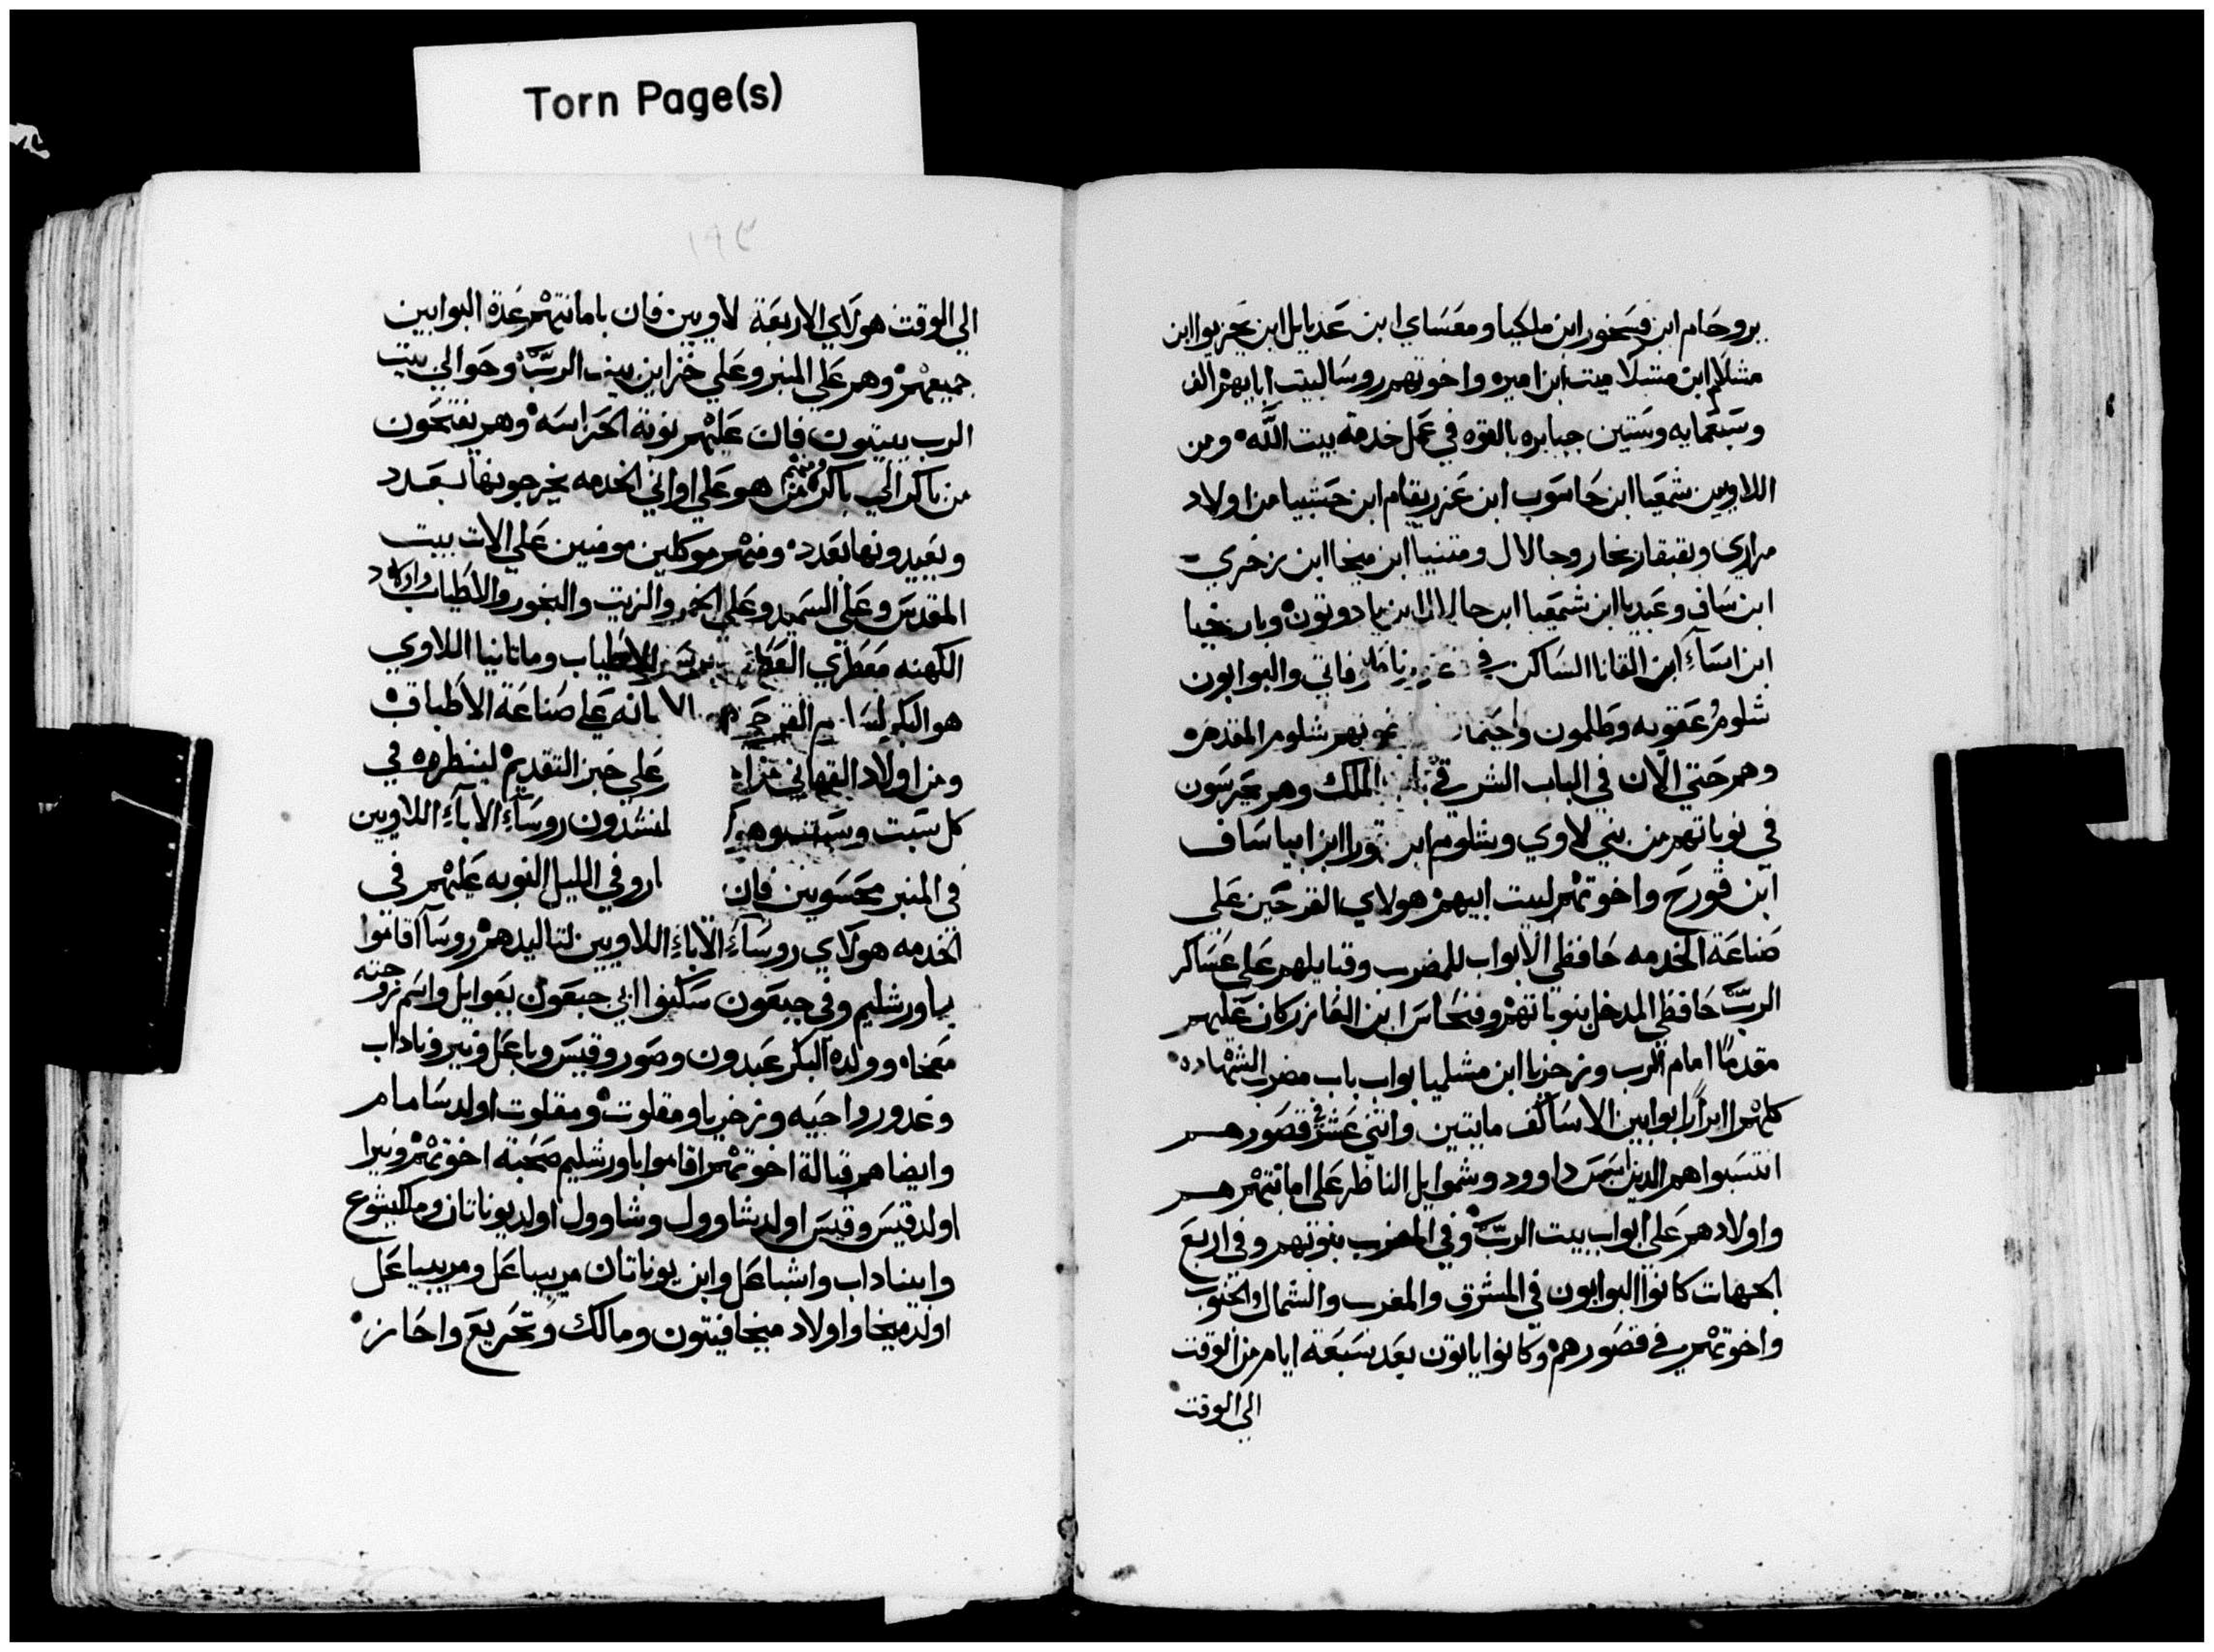 Torn Page(s)
يروحام ابن فسحور ابن ملكيا ومعساي ابن عديايل ابن يحزيوا ابن
مشلام ابن مشلاميت ابن اميره واخوتهم روسا لبيت ابايهم الف
وسبعمايه وستين جبابره بالقوه في عمل خدمة بيت الله ومن
اللاويين شمعيا ابن حاسوب ابن عزريقام ابن حشبيا من اولاد
مراري وبقبقار وجالال ومتنيا ابن ميخا ابن زخري
ابن ساف وعبديا ابن شمعيا ابن جالال ابن يادوتون وبارخيا
ابن اساء ابن القانا الساكن في والبوابون
شلوم عقوبه وطلمون واحيمان شلوم المقدم
وهم حتي الان في الباب الشرقي الملك وهم يحرسون
في نوباتهم من بني لاوي وشلوم ابن قورا ابن ابيا ساف
ابن قورح واخوتهم لبيت ابيهم هولاي القرحيين علي
صناعة الخدمه حافظي الابواب للمضرب وقبايلهم علي عساكر
الرب حافظي المدخل بنوباتهم وفنحاس ابن العازر كان عليهم
مقدما امام الرب وزخريا ابن مشلميا بواب باب مضرب الشهاده
كلهم ابرارا بوابين الاساكف مايتين واثني عشر في قصورهم
انتسبوا هم الدين داوود وشموايل الناظر علي امانتهم هم
واولادهم علي ابواب بيت الرب وفي المضرب بنوبتهم وفي اربع
الجهات كانوا البوابون في المشرق والمغرب والشمال والجنوب
واخوتهم في قصورهم وكانوا ياتون بعد سبعة ايام من الوقت
الي الوقت
١٩٣
الي الوقت هولاي الاربعة لاويين فان بامانتهم عدة البوابين
جميعهم وهم علي المنبر وعلي خزاين بيت الرب وحوالي بيت
الرب يبيتون فان عليهم نوبة الحراسه وهم يفتحون
من باكر الي باكر ومنهم من هو علي اواني الخدمه يخرجونها بعدد
ويعيدونها بعدد ومنهم موكلين مومنين علي الات بيت
المقدس وعلي السميد وعلي الخمر والزيت والبخور والاطياب واولاد
الكهنه معطري العطر الاطياب وماتانيا اللاوي
هو البكر لسلوم القرحي الامانه علي صناعة الاطباق
ومن اولاد القهاني علي خبز التقديم لينظروه في
كل سبت وسبت وهولاي المنشدون روساء الاباء اللاويين
في المنبر محسوبين فان وفي الليل النوبه عليهم في
الخدمه هولاي روساء الاباء اللاويين لتواليدهم روسا اقاموا
باورشليم وفي جبعون سكنوا ابي جبعون يعوايل واسم زوجته
معخاه وولده البكر عبدون وصور وقيس وباعل ونير وناداب
وغدور واحيه وزخريا ومقلوت ومقلوت اولد سامام
وايضا هم قبالة اخوتهم اقاموا باورشليم صحبة اخوتهم ونيرا
اولد قيس وقيس اولد شاوول وشاوول اولد يوناتان وملكيشوع
وابيناداب واشباعل وابن يوناتان مريبباعل ومريبباعل
اولد ميخا واولاد ميخا فيتون ومالك وتحريع واحاز